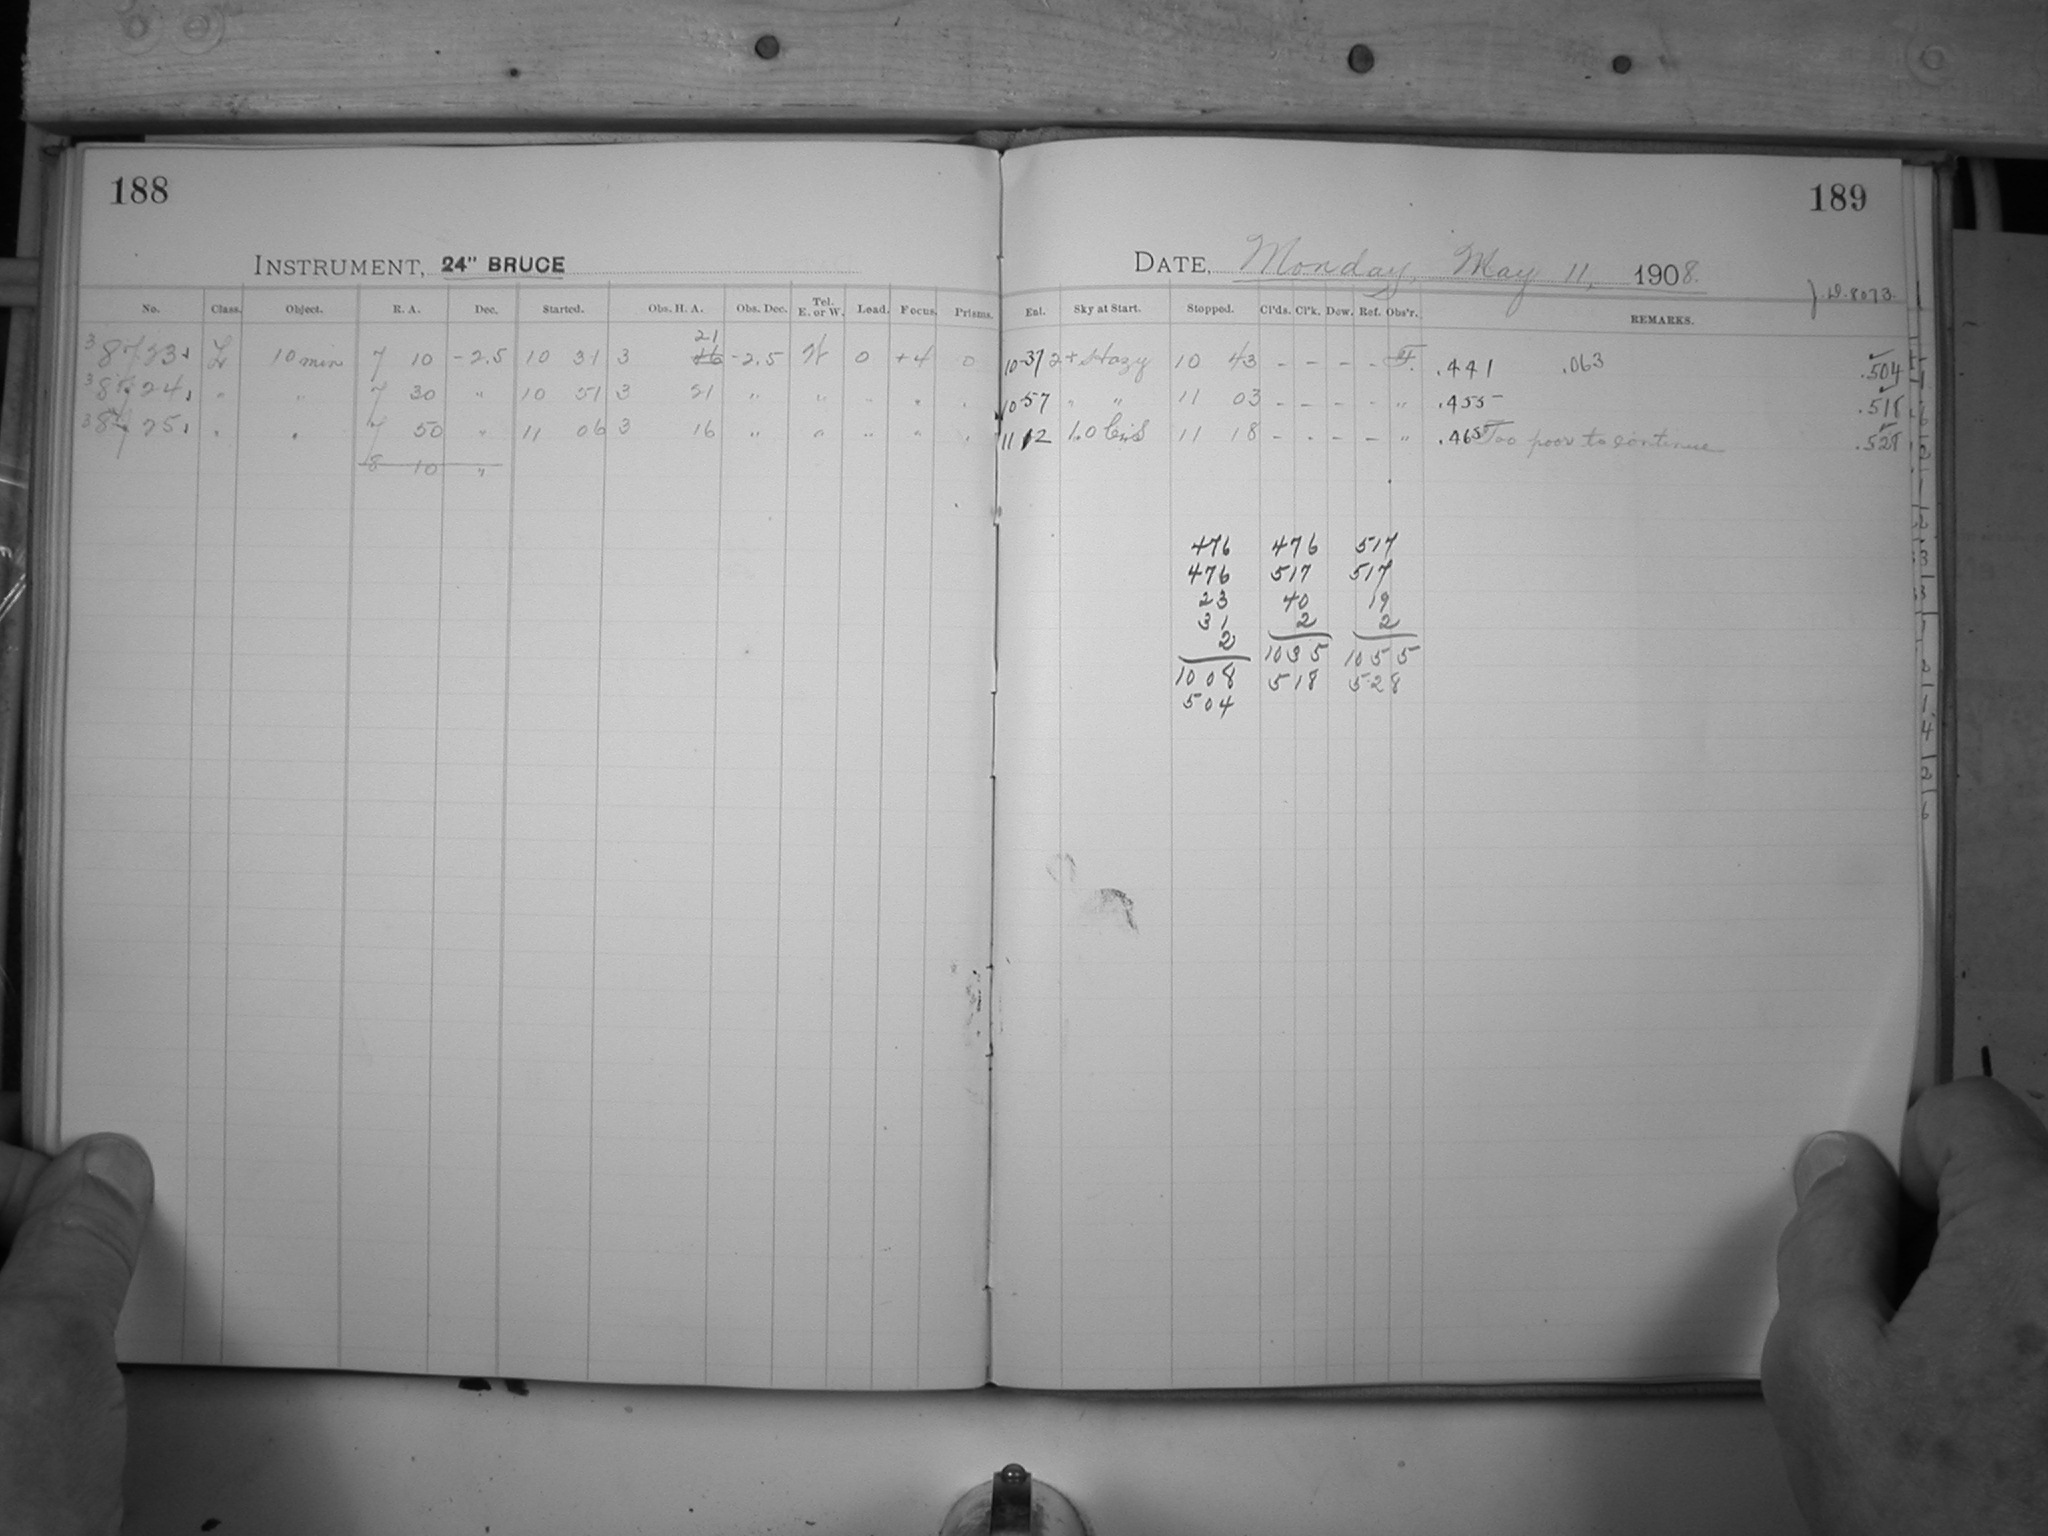 188
INSTRUMENT, 24" BRUCE
No. Class. Object. R. A. Dec. Started. Obs. H. A. Obs. Dec. Tel. E. or W. Lead. Focus. Prisms.
21
38723 L 10 min 7 10 -2.5 10 31 3 16 -2.5 W 0 +4 0
38724 " " 7 30 " 10 51 3 21 " " " " "
38725 " " 7 50 " 11 06 3 16 " " " " "
8 10 "
189
DATE, Monday, May 11, 1908.
J.D. 8073.
Enl. Sky at Start. Stopped. Cl'ds. Cl'k. Dew. Ref. Obs'r. REMARKS.
10-37 2+ Hazy 10 43 - - - - .441 .063 .504
10 57 " " 11 03 - - - - " .455 .518
11 12 1.0 11 18 - - - - " .465 Too poor to continue .528
476 476 517
476 517 517
23 40 19
31 2 2
2 1035 1055
1008 518 528
504